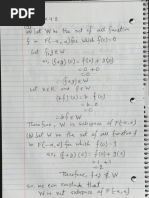 (a) Let W is the set of all function
f in F(-∞, ∞) for which f(0)=0
Let f, g ∈ W
as, (f+g)(0) = f(0) + g(0)
= 0 + 0
= 0
f+g ∈ W
Let k ∈ R and f ∈ W
(kf)(0) = k f(0)
= k · 0
= 0
kf ∈ W
Therefore, W is subspace of F(-∞, ∞)
(b) Let W is the set of all function f
in F(-∞, ∞) for which f(0) = 1
as, (f+g)(0) = f(0) + g(0)
= 1 + 1
= 2
Therefore, f+g ∉ W
So, we can conclude that
W is not subspace of F(-∞, ∞)